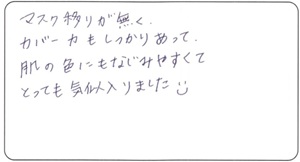 マスク移りが無く、
カバー力もしっかりあって、
肌の色にもなじみやすくて
とっても気似入りました